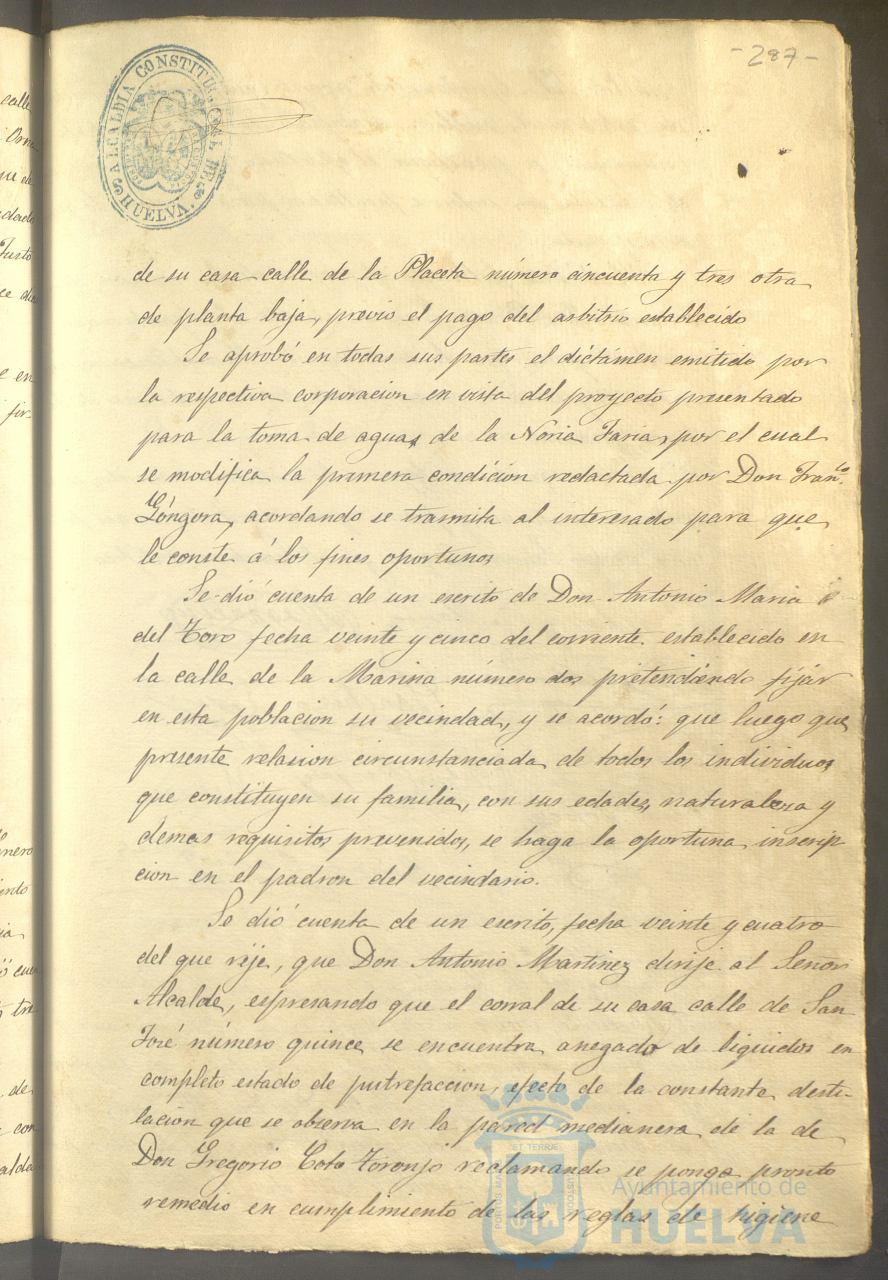 -287-
ALCALDIA CONSTITUCIONAL DE HUELVA.
de su casa calle de la Placeta número cincuenta y tres otra
de planta baja, previo el pago del arbitrio establecido
Se aprobó en todas sus partes el dictámen emitido por
la respectiva corporacion en vista del proyecto presentado
para la toma de aguas de la Noria Faria, por el cual
se modifica la primera condicion redactada por Don Fran.co
Góngora, acordando se trasmita al interesado para que
le conste á los fines oportunos
Se dió cuenta de un escrito de Don Antonio Maria
del Toro fecha veinte y cinco del corriente establecido en
la calle de la Marina número dos pretendiendo fijár
en esta poblacion su vecindad, y se acordó: que luego que
presente relasion circunstanciada de todos los individuos
que constituyen su familia, con sus edades, naturaleza y
demas requisitos prevenidos, se haga la oportuna inscrip
cion en el padron del vecindario.
Se dió cuenta de un escrito, fecha veinte y cuatro
del que rije, que Don Antonio Martinez dirije al Señor
Alcalde, espresando que el corral de su casa calle de San
José número quince se encuentra anegado de liquidos en
completo estado de putrefaccion, efecto de la constante desti-
lacion que se observa en la pared medianera de la de
Don Gregorio Coto Toronjo reclamando se ponga pronto
remedio en cumplimiento de las reglas de higiene
Ayuntamiento de
HUELVA
calle
que de
Justo
e en
nero
iento
cuen
de
con